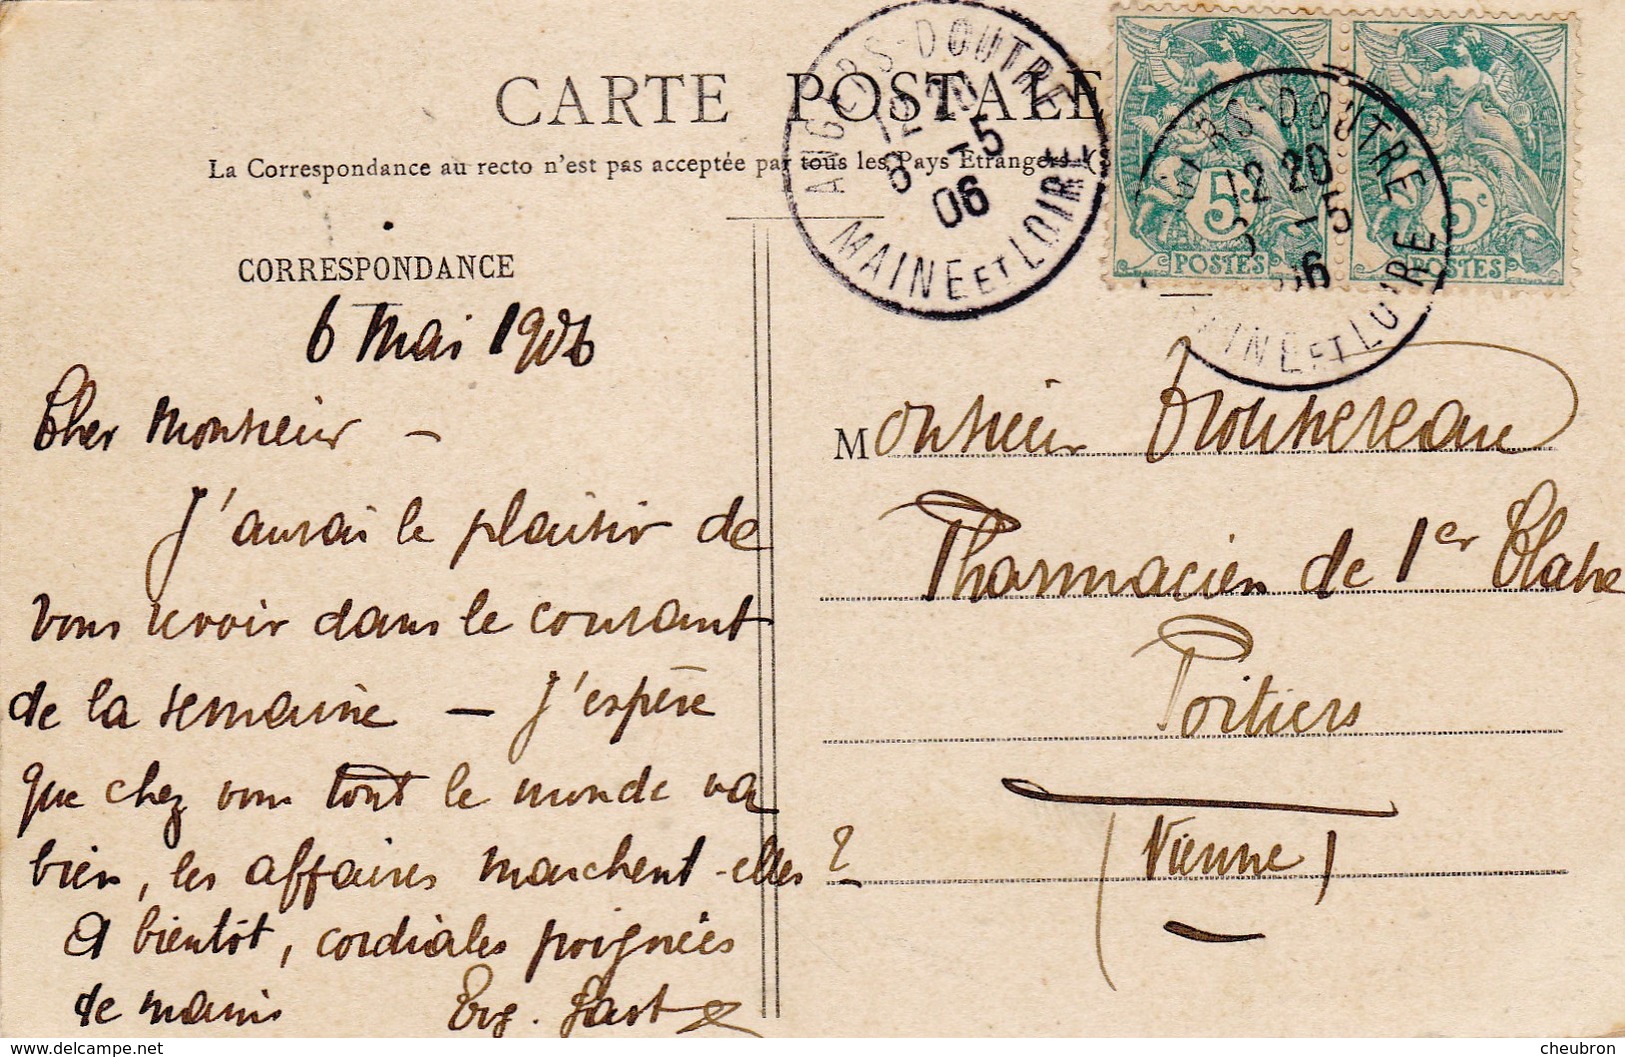 CARTE POSTALE
La Correspondance au recto n'est pas acceptée par tous les Pays Etrangers
ANGERS-DOUTRE
12 20
6 -5
06
MAINE ET LOIRE
GERS-DOUTRE
12 20
-5
06
MAINE ET LOIRE
5c
POSTES
5c
POSTES
CORRESPONDANCE
6 Mai 1906
Cher Monsieur -
J'aurai le plaisir de
vous revoir dans le courant
de la semaine - J'espère
que chez vous tout le monde va
bien, les affaires marchent-elles ?
A bientôt, cordiales poignées
de mains Eug.
Monsieur
Pharmacien de 1er Classe
Poitiers
(Vienne)
delcampe.net
Copyright website and owner
cheubron